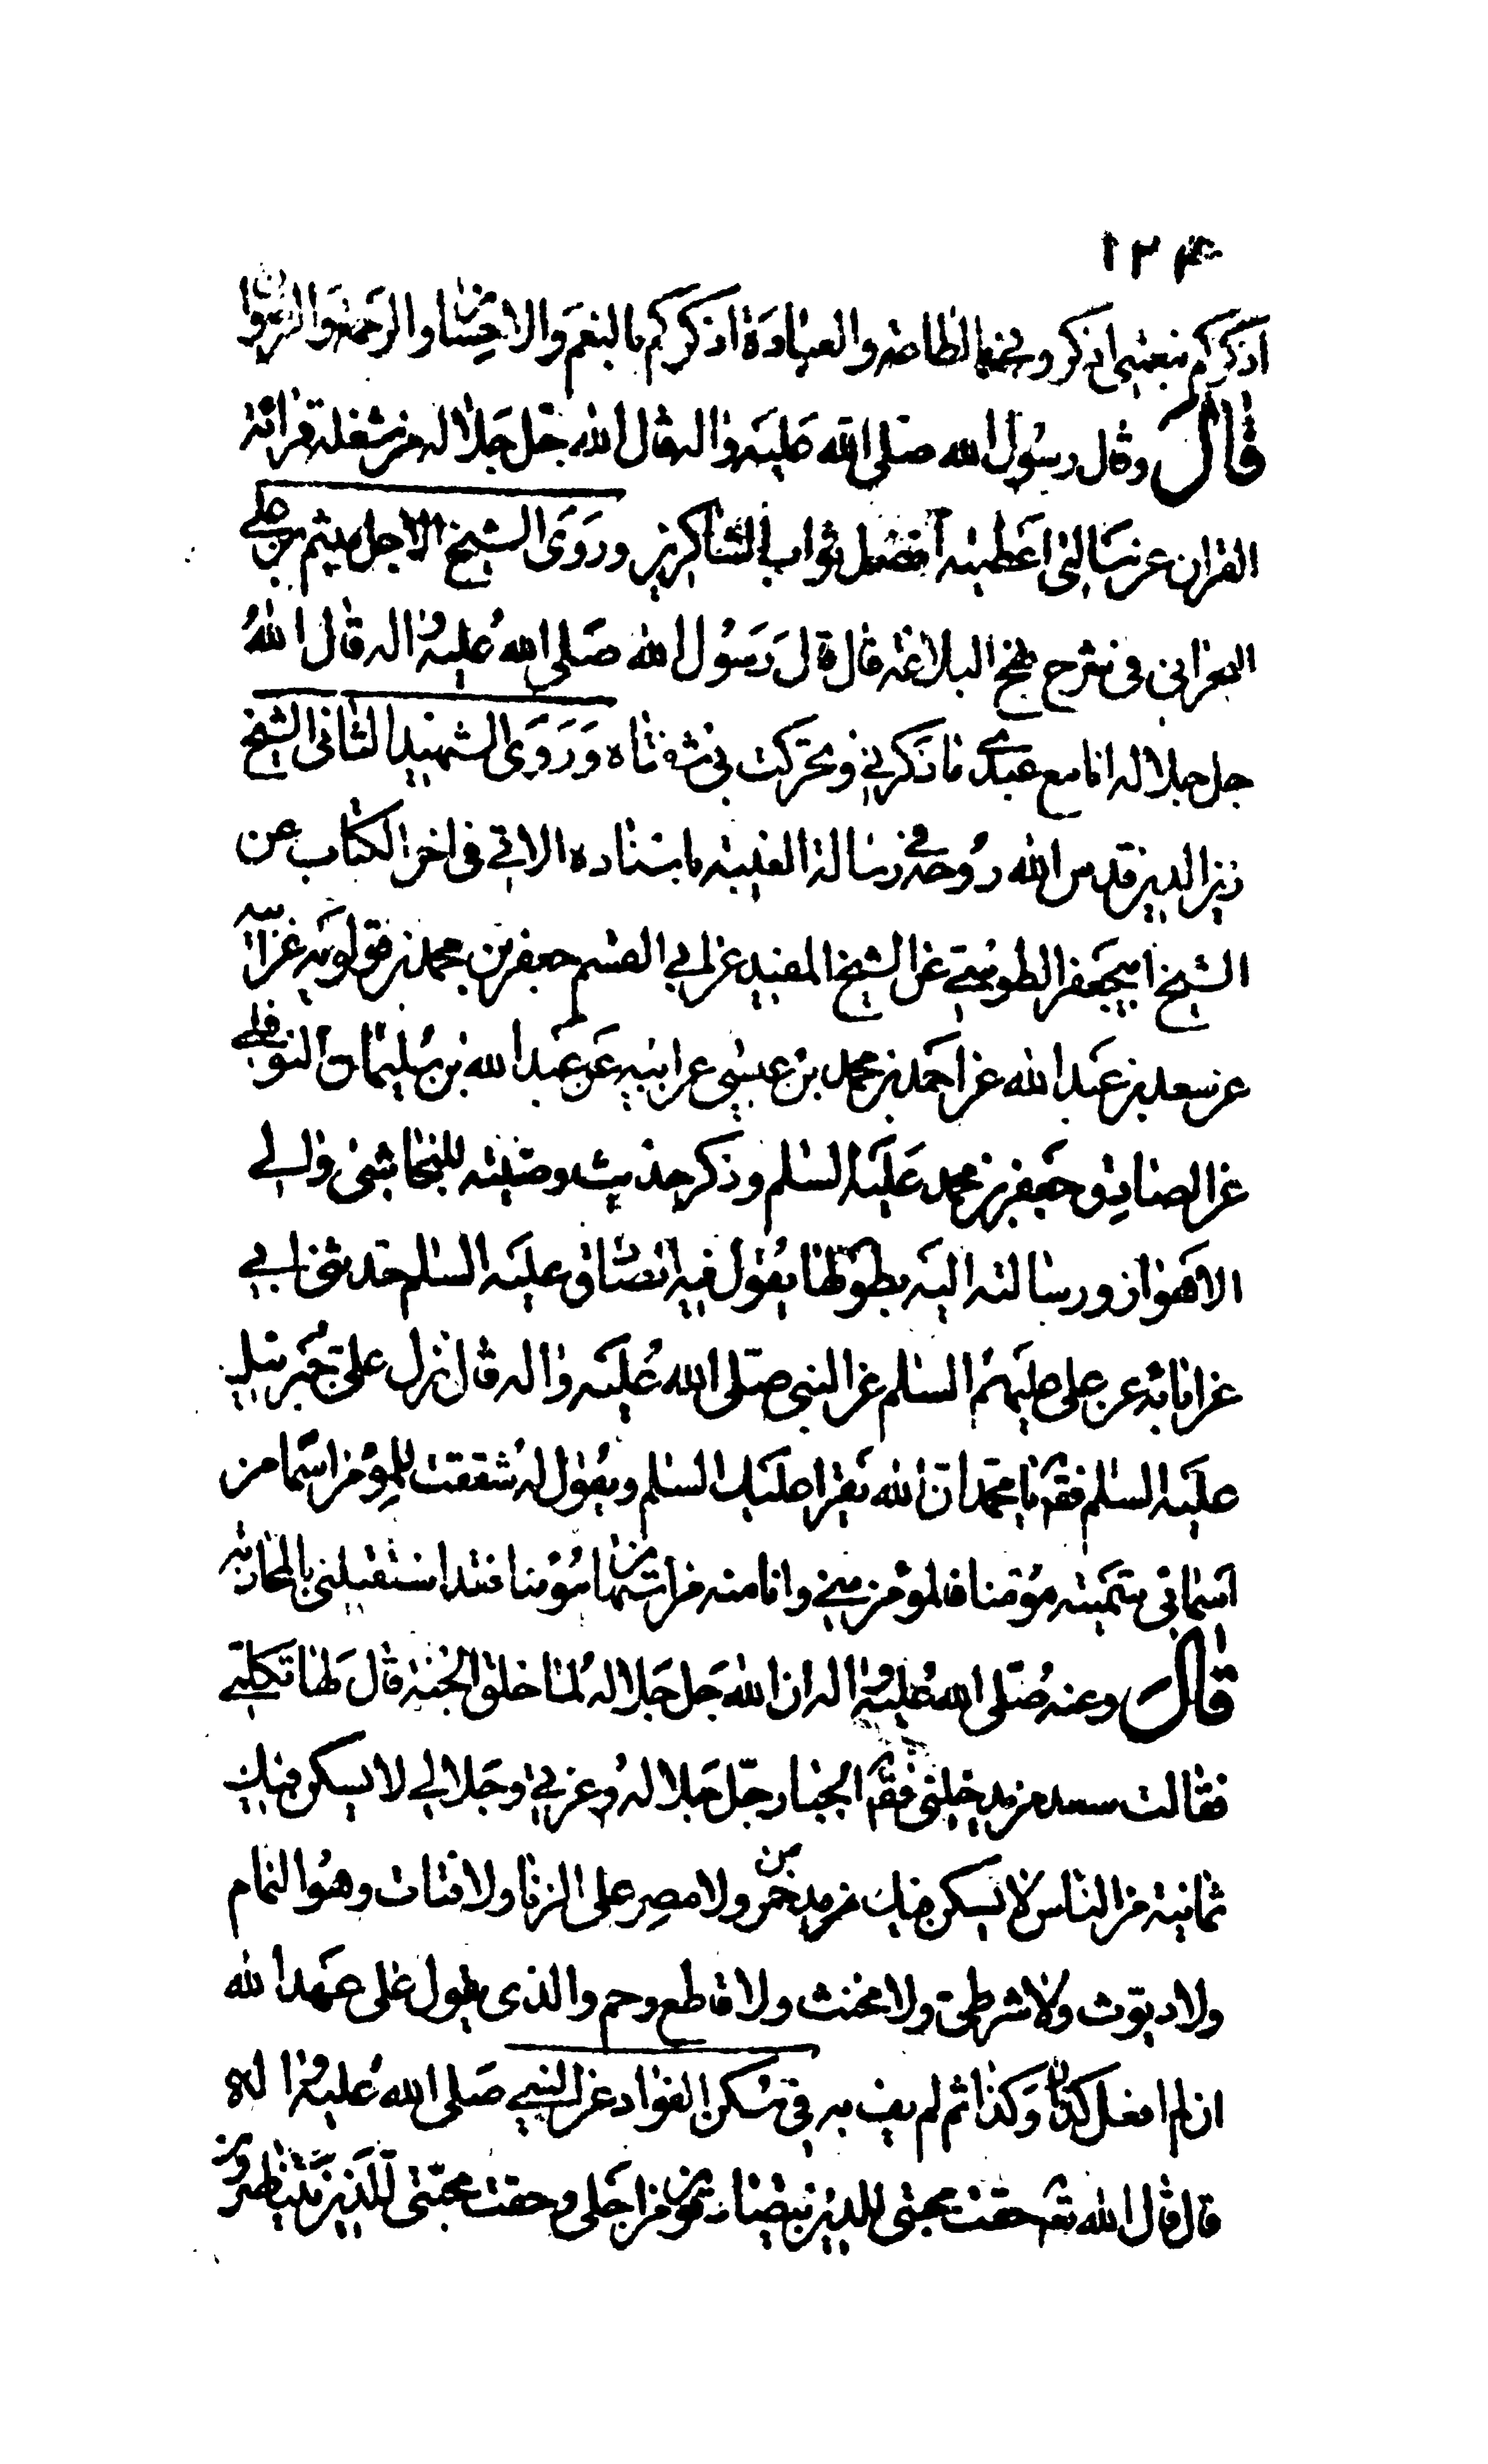 ١٢۴
اذكركم بنعمتى اذكرونى بالطاعة والعبادة اذكركم بالنعم والاحسان والرحمة والرضوان
قال وقال رسول الله صلى الله عليه واله قال الله جل جلاله من شغلته قرائة
القران عن مسالتى اعطيته افضل ثواب الشاكرين وروى الشيخ الاجل ميثم بن على
البحرانى فى شرح نهج البلاغة قال قال رسول الله صلى الله عليه واله قال الله
جل جلاله انا مع عبدى ما ذكرنى وتحركت بى شفتاه وروى الشهيد الثانى الشيخ
زين الدين قدس الله روحه فى رسالة الغيبة باسناده الاتى فى اخر الكتاب عن
الشيخ ابيجعفر الطوسى عن الشيخ المفيد عن ابى القسم جعفر بن محمد بن قولويه عن ابيه
عن سعد بن عبد الله عن احمد بن محمد بن عيسى عن ابيه عن عبد الله بن سليمان النوفلى
عن الصادق جعفر بن محمد عليه السلم وذكر حديث وصيته للنجاشى والى
الاهواز ورسالته اليه بطولها يقول فيه الصادق عليه السلم حدثنى ابى
عن ابائه عن على عليهم السلم عن النبى صلى الله عليه واله قال نزل على جبرئيل
عليه السلم فقال يا محمد ان الله يقرا عليك السلم ويقول له شققت للمؤمن اسما من
اسمائى سميته مؤمنا فالمؤمن منى وانا منه من استهان مؤمنا فقد استقبلنى بالمحاربة
قال وعنه صلى الله عليه واله ان الله جل جلاله لما خلق الجنة قال لها تكلمى
فقالت سعد من يدخلنى فقال الجبار جل جلاله وعزتى وجلالى لا يسكن فيك
ثمانية من الناس لا يسكن فيك مدمن خمر ولا مصر على الزنا ولا قتات وهو النمام
ولا ديوث ولا شرطى ولا مخنث ولا قاطع رحم والذى يقول على عهد الله
ان لم افعل كذا وكذا ثم لم يف به فى مسكن الفؤاد عن النبى صلى الله عليه واله
قال قال الله تعالى حقت محبتى للذين يتصادقون من اجلى وحقت محبتى للذين يتناصرون